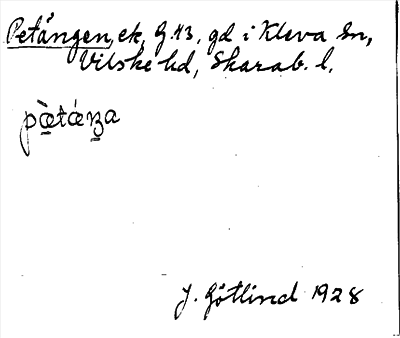 Petängen, ek, G.13, gd i Kleva sn,
Vilske hd, Skarab. l.
pæ̀tǽŋa
J. Götlind 1928